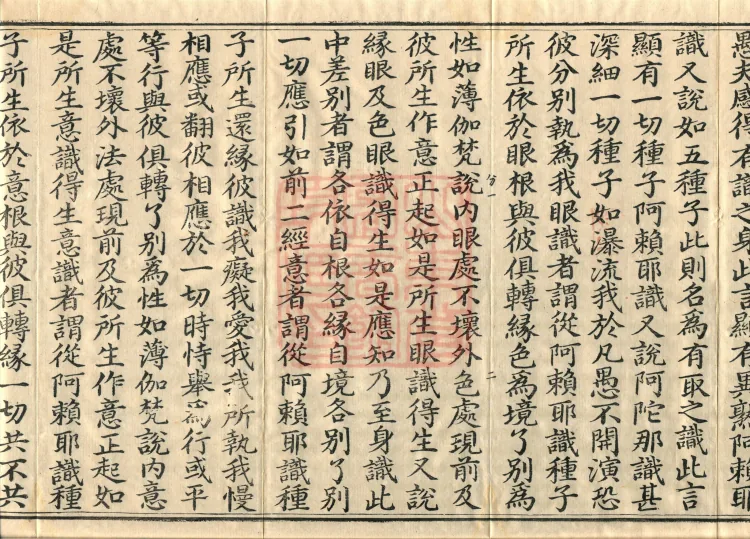 愚夫感得有識之身此言顯有異熟阿賴耶
識又說如五種子此則名為有取之識此言
顯有一切種子阿賴耶識又說阿陀那識甚
深細一切種子如瀑流我於凡愚不開演恐
彼分別執為我眼識者謂從阿賴耶識種子
所生依於眼根與彼俱轉緣色為境了別為
性如薄伽梵說內眼處不壞外色處現前及
彼所生作意正起如是所生眼識得生又說
緣眼及色眼識得生如是應知乃至身識此
中差別者謂各依自根各緣自境各別了別
一切應引如前二經意者謂從阿賴耶識種
子所生還緣彼識我癡我愛我我所執我慢
相應或翻彼相應於一切時恃舉為行或平
等行與彼俱轉了別為性如薄伽梵說內意
處不壞外法處現前及彼所生作意正起如
是所生意識得生意識者謂從阿賴耶識種
子所生依於意根與彼俱轉緣一切共不共